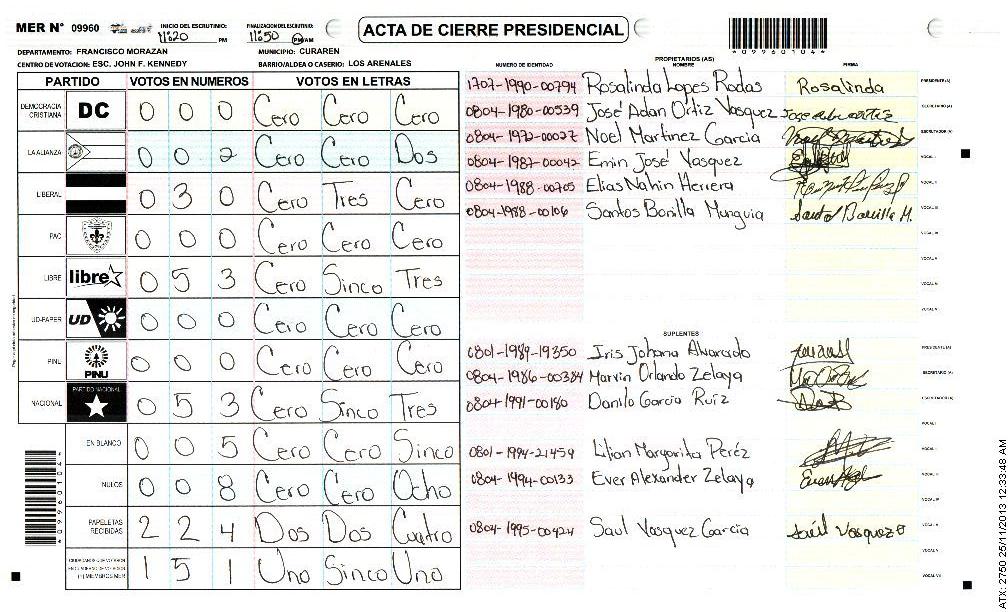 MER N° 09960
INICIO DEL ESCRUTINIO: 11:20 PM
FINALIZACION DEL ESCRUTINIO: 11:50 PM/AM
ACTA DE CIERRE PRESIDENCIAL
*09960104*
DEPARTAMENTO: FRANCISCO MORAZAN MUNICIPIO: CURAREN
CENTRO DE VOTACION: ESC. JOHN F. KENNEDY BARRIO/ALDEA O CASERIO: LOS ARENALES
PARTIDO VOTOS EN NUMEROS VOTOS EN LETRAS
DEMOCRACIA CRISTIANA DC 0 0 0 Cero Cero Cero
LA ALIANZA 0 0 2 Cero Cero Dos
LIBERAL 0 3 0 Cero Tres Cero
PAC 0 0 0 Cero Cero Cero
LIBRE libre 0 5 3 Cero Sinco Tres
UD-FAPER UD 0 0 0 Cero Cero Cero
PINU PINU 0 0 0 Cero Cero Cero
NACIONAL PARTIDO NACIONAL 0 5 3 Cero Sinco Tres
EN BLANCO 0 0 5 Cero Cero Sinco
NULOS 0 0 8 Cero Cero Ocho
PAPELETAS RECIBIDAS 2 2 4 Dos Dos Cuatro
CIUDADANOS QUE VOTARON EN CUADERNO DE VOTACION (+) MIEMBROS MER 1 5 1 Uno Sinco Uno
*09960104*
PROPIETARIOS (AS)
NUMERO DE IDENTIDAD NOMBRE FIRMA
1707-1990-00794 Rosalinda Lopes Rodas Rosalinda PRESIDENTE (A)
0804-1980-00539 José Adan Órtiz Vasquez SECRETARIO (A)
0804-1972-00027 Noel Martinez Garcia ESCRUTADOR (A)
0804-1987-00042 Emin José Vasquez VOCAL I
0804-1988-00705 Elias Nahin Herrera VOCAL II
0804-1988-00106 Santos Bonilla Munguia Santos Bonilla M. VOCAL III
SUPLENTES
0801-1989-19350 Iris Johana Alvarado PRESIDENTE (A)
0804-1986-00384 Marvin Orlando Zelaya SECRETARIO (A)
0804-1991-00180 Danilo Garcia Ruíz ESCRUTADOR (A)
0801-1994-21459 Lilian Margarita Peréz
0804-1994-00133 Ever Alexander Zelaya
0804-1995-00424 Saul Vasquez Garcia Saúl Vasquez
ATX: 2750 25/11/2013 12:33:48 AM